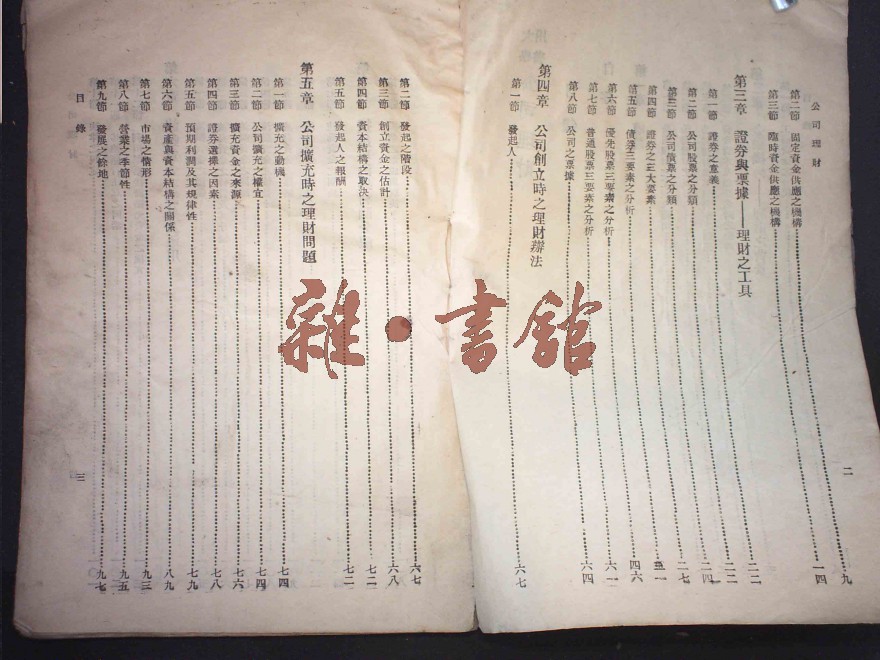 公司理財
二
第二節 固定資金供應之機構 九
第三節 臨時資金供應之機構 一四
第三章 證券與票據——理財之工具 二二
第一節 證券之意義 二二
第二節 公司股票之分類 二四
第三節 公司債票之分類 二七
第四節 證券之三大要素
第五節 債券三要素之分析 四六
第六節 優先股票三要素之分析 六一
第七節 普通股票三要素之分析
第八節 公司之票據 六四
第四章 公司創立時之理財辦法
第一節 發起人 六七
第二節 發起之階段 六七
第三節 創立資金之估計 六八
第四節 資本結構之取決 七二
第五節 發起人之報酬 七二
第五章 公司擴充時之理財問題
第一節 擴充之動機 七四
第二節 公司擴充之權宜 七四
第三節 擴充資金之來源 七六
第四節 證券選擇之因素 七八
第五節 預期利潤及其規律性 七九
第六節 資產與資本結構之關係 八九
第七節 市場之情形 九三
第八節 營業之季節性 九五
第九節 發展之餘地 九七
目錄
三
雜·書館